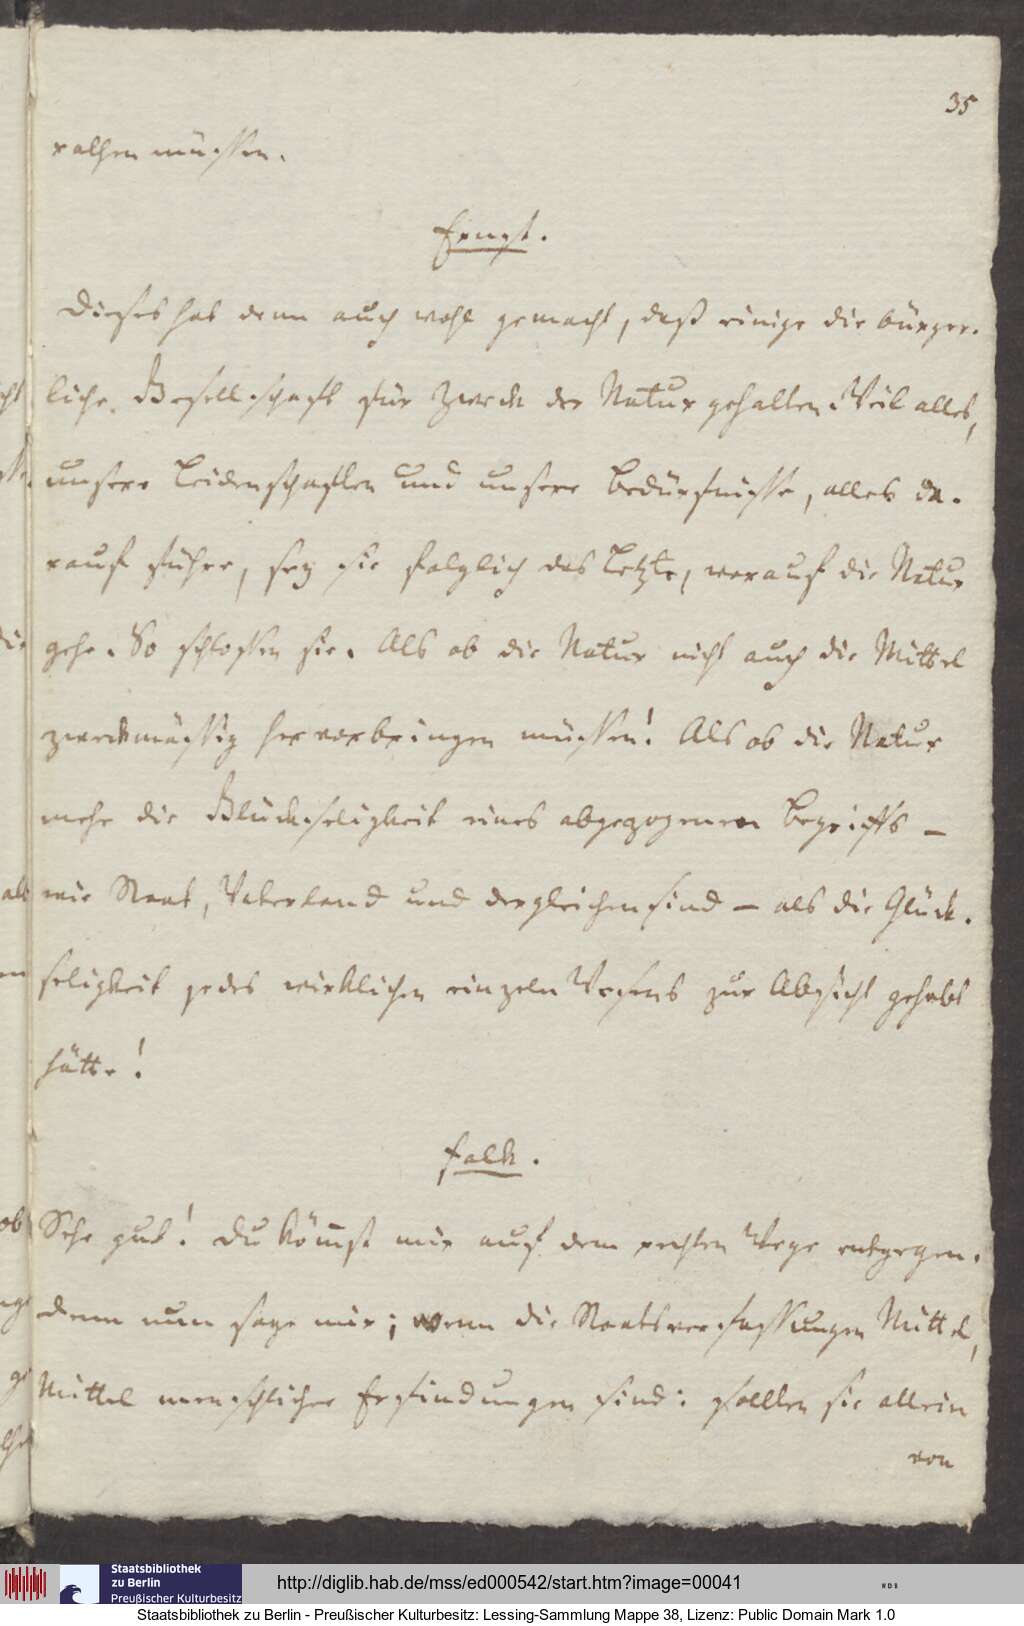 35
rathen müssen.
Ernst.
Dieses hat denn auch wohl gemacht, daß einige die bürger-
liche Gesellschaft für Zweck der Natur gehalten. Weil alles,
unsere Leidenschaften und unsere Bedürfnisse, alles da-
rauf führe, sey sie folglich das Letzte, worauf die Natur
gehe. So schlossen sie. Als ob die Natur nicht auch die Mittel
zweckmässig hervorbringen müssen! Als ob die Natur
mehr die Glückseligkeit eines abgezogenen Begriffs –
wie Staat, Vaterland und dergleichen sind – als die Glück-
seligkeit jedes wirklichen einzeln Wesens zur Absicht gehabt
hätte!
Falk.
Sehr gut! Du kömmst mir auf dem rechten Wege entgegen.
Denn nun sage mir; wenn die Staatsverfassungen Mittel,
Mittel menschlicher Erfindungen sind: sollten sie allein
von
Staatsbibliothek
zu Berlin
Preußischer Kulturbesitz
http://diglib.hab.de/mss/ed000542/start.htm?image=00041
WDB
Staatsbibliothek zu Berlin - Preußischer Kulturbesitz: Lessing-Sammlung Mappe 38, Lizenz: Public Domain Mark 1.0